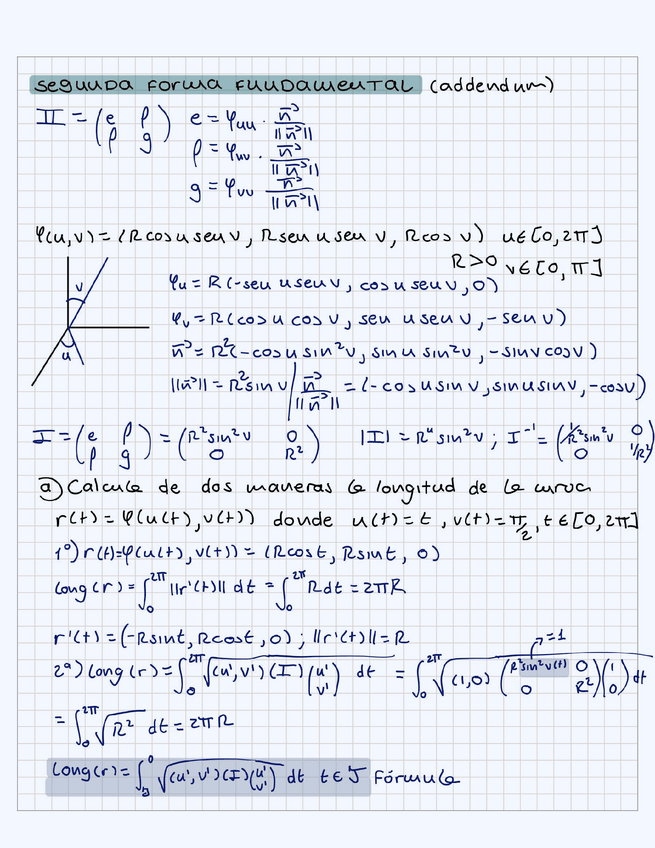 segunda forma fundamental (addendum)
II = (e f
f g) e = φuu · n⃗/||n⃗||
f = φuv · n⃗/||n⃗||
g = φvv n⃗/||n⃗||
φ(u,v) = (R cos u sen v, R sen u sen v, R cos v) u ∈ [0, 2π]
R > 0 v ∈ [0, π]
v
u
φu = R(-sen u sen v, cos u sen v, 0)
φv = R(cos u cos v, sen u sen v, -sen v)
n⃗ = R²(-cos u sin²v, sin u sin²v, -sin v cos v)
||n⃗|| = R² sin v | n⃗/||n⃗|| = (-cos u sin v, sin u sin v, -cos v)
I = (e f
f g) = (R² sin²v 0
0 R²) |I| = R⁴ sin²v ; I⁻¹ = (1/R² sin²v 0
0 1/R²)
a) Calcule de dos maneras la longitud de la curva
r(t) = φ(u(t), v(t)) donde u(t) = t, v(t) = π/2, t ∈ [0, 2π]
1º) r(t) = φ(u(t), v(t)) = (R cos t, R sin t, 0)
Long(r) = ∫₀^2π ||r'(t)|| dt = ∫₀^2π R dt = 2πR
r'(t) = (-R sin t, R cos t, 0) ; ||r'(t)|| = R
=1
2º) Long(r) = ∫₀^2π √(u', v')(I)(u' v') dt = ∫₀^2π √(1,0)(R² sin² v(t) 0
0 R²)(1 0) dt
= ∫₀^2π √R² dt = 2πR
Long(r) = ∫ √(u', v')(I)(u' v') dt t ∈ J Fórmula